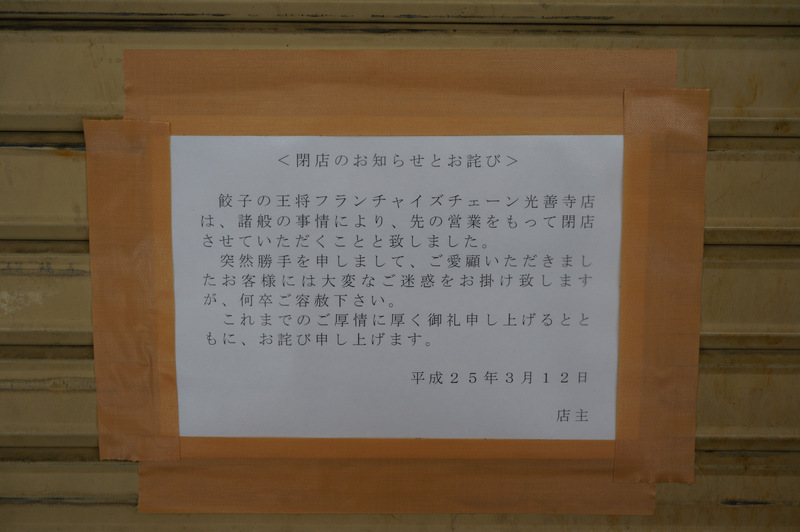 ＜閉店のお知らせとお詫び＞
餃子の王将フランチャイズチェーン光善寺店
は、諸般の事情により、先の営業をもって閉店
させていただくことと致しました。
突然勝手を申しまして、ご愛顧いただきまし
たお客様には大変なご迷惑をお掛け致します
が、何卒ご容赦下さい。
これまでのご厚情に厚く御礼申し上げるとと
もに、お詫び申し上げます。
平成２５年３月１２日
店主